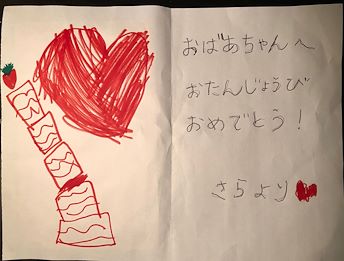 おばあちゃんへ
おたんじょうび
おめでとう!
さらより